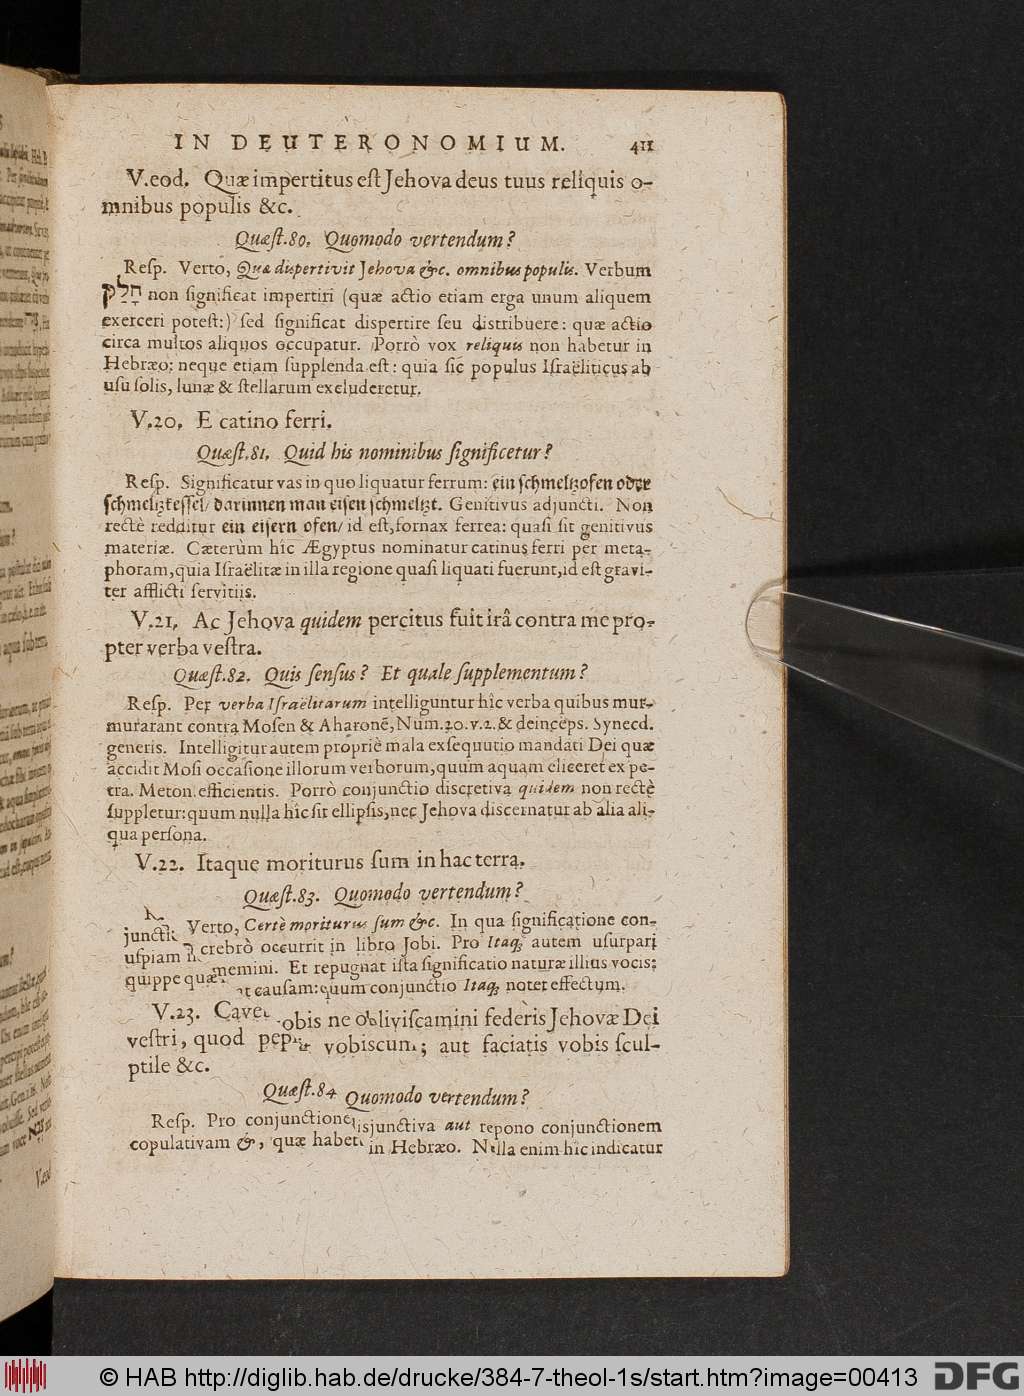 IN DEUTERONOMIUM. 411
V.eod. Quæ impertitus est Jehova deus tuus reliquis o-
mnibus populis &c.
Quæst.80. Quomodo vertendum?
Resp. Verto, Quæ dispertivit Jehova &c. omnibus populis. Verbum
חָלַק non significat impertiri (quæ actio etiam erga unum aliquem
exerceri potest:) sed significat dispertire seu distribuere: quæ actio
circa multos aliquos occupatur. Porrò vox reliquis non habetur in
Hebræo; neque etiam supplenda est: quia sic populus Israëliticus ab
usu solis, lunæ & stellarum excluderetur.
V.20. E catino ferri.
Quæst.81. Quid his nominibus significetur?
Resp. Significatur vas in quo liquatur ferrum: ein schmeltzofen oder
schmeltzkessel/ darinnen man eisen schmeltzt. Genitivus adjuncti. Non
rectè redditur ein eisern ofen/ id est, fornax ferrea: quasi sit genitivus
materiæ. Cæterùm hîc Ægyptus nominatur catinus ferri per meta-
phoram, quia Israëlitæ in illa regione quasi liquati fuerunt, id est gravi-
ter afflicti servitiis.
V.21. Ac Jehova quidem percitus fuit irâ contra me pro-
pter verba vestra.
Quæst.82. Quis sensus? Et quale supplementum?
Resp. Per verba Israëlitarum intelliguntur hîc verba quibus mur-
murarant contra Mosen & Aharonē, Num.20.v.2.& deinceps. Synecd.
generis. Intelligitur autem propriè mala exsequutio mandati Dei quæ
accidit Mosi occasione illorum verborum, quum aquam eliceret ex pe-
tra. Meton. efficientis. Porrò conjunctio discretiva quidem non rectè
suppletur: quum nulla hîc sit ellipsis, nec Jehova discernatur ab alia ali-
qua persona.
V.22. Itaque moriturus sum in hac terra.
Quæst.83. Quomodo vertendum?
Verto, Certè moriturus sum &c. In qua significatione con-
juncti crebrò occurrit in libro Jobi. Pro Itaq; autem usurpari
uspiam memini. Et repugnat ista significatio naturæ illius vocis;
quippe quæ causam: quum conjunctio Itaq; notet effectum.
V.23. Cavete vobis ne obliviscamini federis Jehovæ Dei
vestri, quod pepigit vobiscum; aut faciatis vobis scul-
ptile &c.
Quæst.84 Quomodo vertendum?
Resp. Pro conjunctione disjunctiva aut repono conjunctionem
copulativam &, quæ habetur in Hebræo. Nulla enim hîc indicatur
© HAB http://diglib.hab.de/drucke/384-7-theol-1s/start.htm?image=00413
DFG